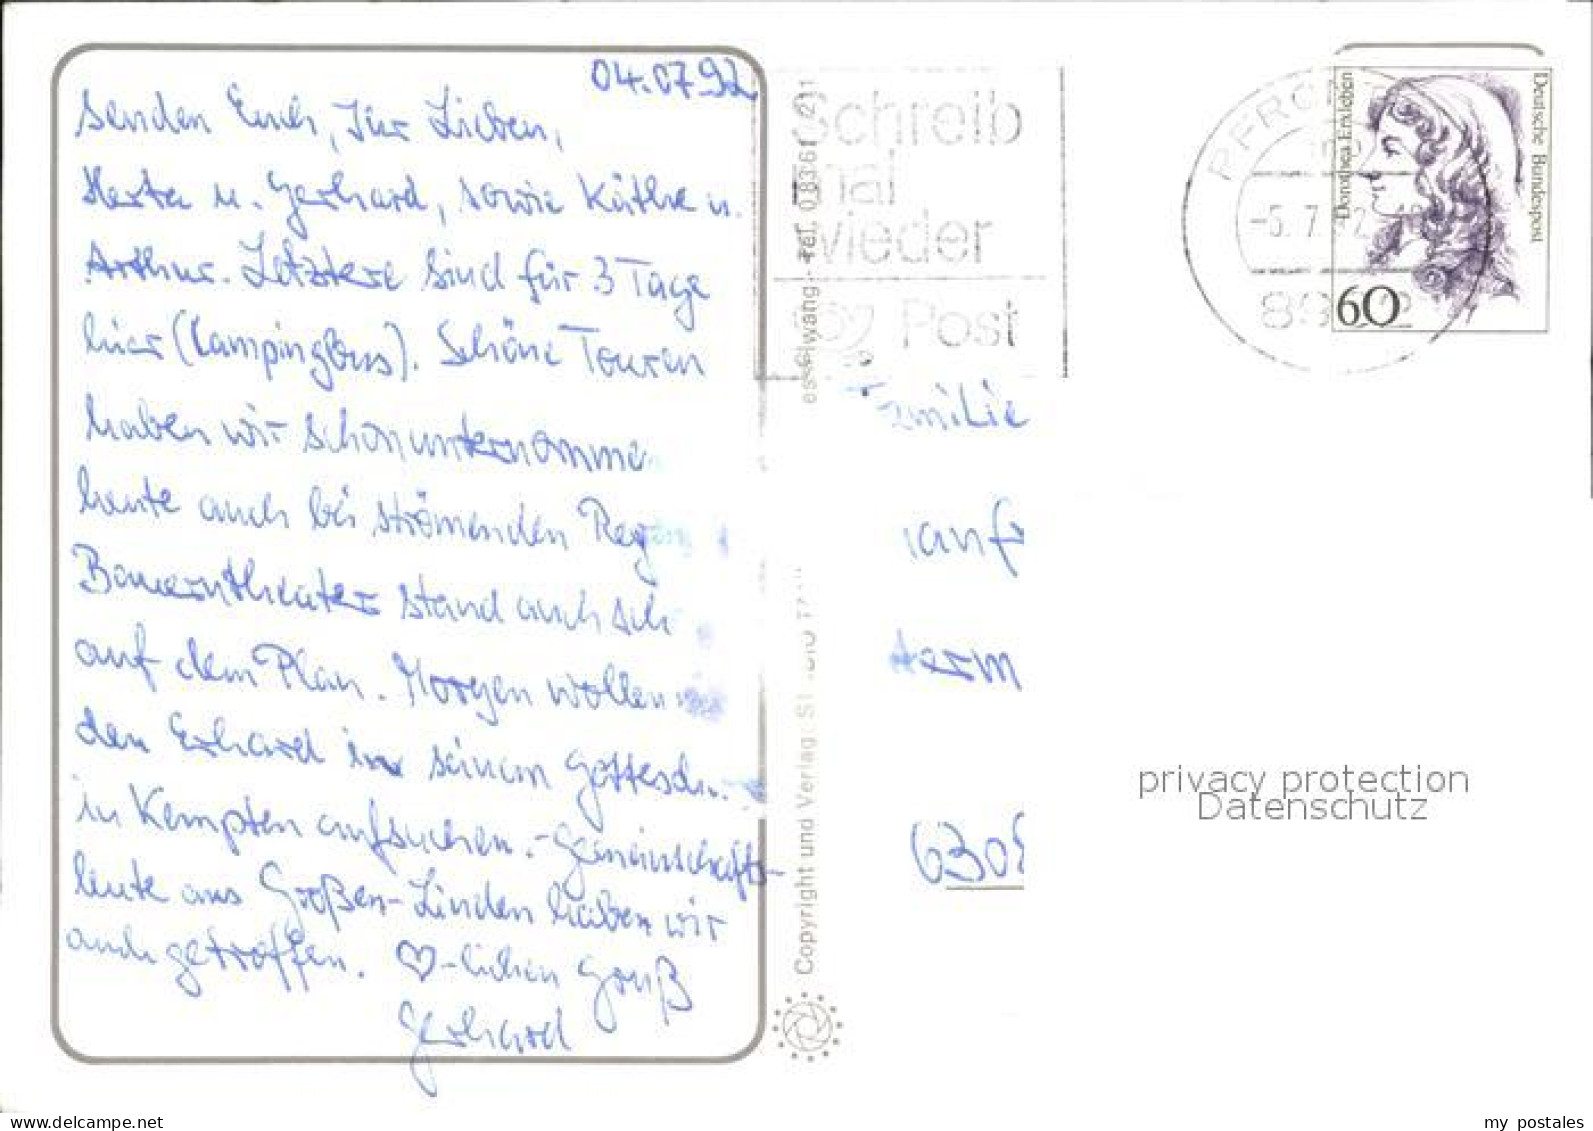 04.07.92
senden Euch, Ihr Lieben,
Herta u. Gerhard, sowie Käthe u.
Arthur. Letztere sind für 3 Tage
hier (Campingbus). Schöne Touren
haben wir schon unternomme
heute auch bei strömenden Reg
Bauerntheater stand auch sch
auf dem Plan. Morgen wollen
den Erhard in seinem Gottesd
in Kempten aufsuchen. - Gemeinschafts-
leute aus Großen-Linden haben wir
auch getroffen. ♡-lichen Gruß
Gerhard
Copyright und Verlag:
wang · Tel. 0 83 61
Schreib
mal
wieder
Post
PFRO
-5.7. 92
Deutsche Bundespost
Dorothea Erxleben
60
amilie
anfr
term
6308
privacy protection
Datenschutz
www.delcampe.net
my_postales